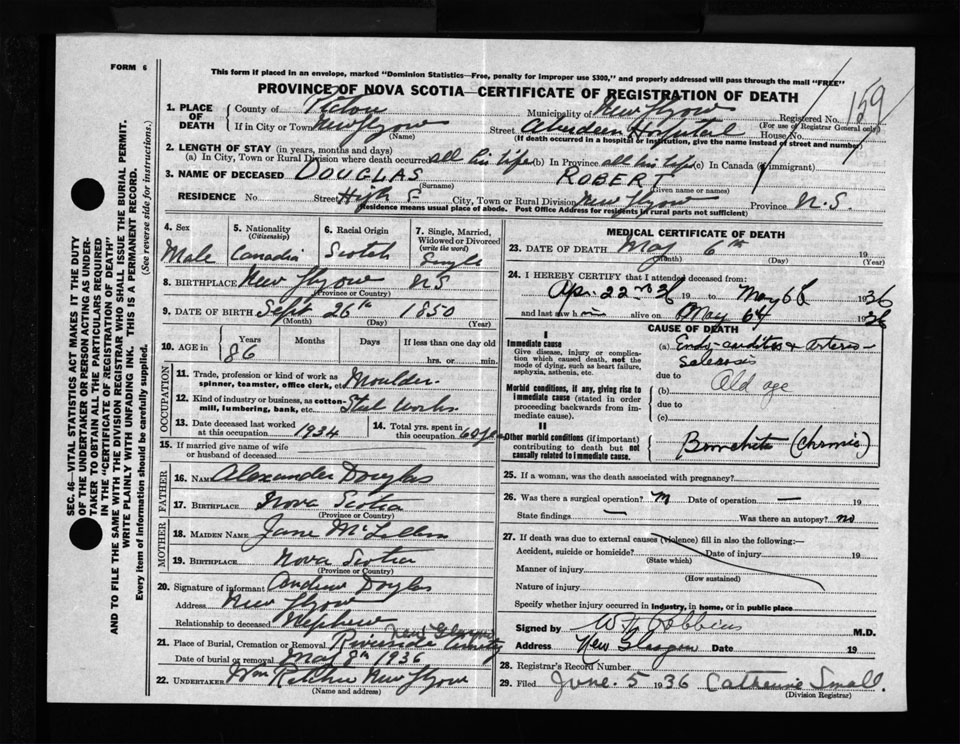 FORM 6
This form if placed in an envelope, marked "Dominion Statistics—Free, penalty for improper use $300," and properly addressed will pass through the mail "FREE"
PROVINCE OF NOVA SCOTIA—CERTIFICATE OF REGISTRATION OF DEATH
1. PLACE OF DEATH
County of Pictou Municipality of New Glasgow Registered No. 159
(For use of Registrar General only)
If in City or Town New Glasgow Street Aberdeen Hospital House No.
(Name) (If death occurred in a hospital or institution, give the name instead of street and number)
2. LENGTH OF STAY (in years, months and days)
(a) In City, Town or Rural Division where death occurred all his life (b) In Province all his life (c) In Canada (if immigrant)
3. NAME OF DECEASED DOUGLAS ROBERT
(Surname) (Given name or names)
RESIDENCE No Street High St City, Town or Rural Division New Glasgow Province N.S.
(Residence means usual place of abode. Post Office Address for residents in rural parts not sufficient)
4. Sex Male
5. Nationality (Citizenship) Canadian
6. Racial Origin Scotch
7. Single, Married, Widowed or Divorced (write the word) Single
8. BIRTHPLACE New Glasgow NS
(Province or Country)
9. DATE OF BIRTH Sept 26th 1850
(Month) (Day) (Year)
10. AGE in Years Months Days If less than one day old
86 hrs. or min.
OCCUPATION
11. Trade, profession or kind of work as spinner, teamster, office clerk, etc. Moulder
12. Kind of industry or business, as cotton-mill, lumbering, bank, etc. Steel Works
13. Date deceased last worked at this occupation 1934
14. Total yrs. spent in this occupation 60 yrs
15. If married give name of wife or husband of deceased
FATHER
16. NAME Alexander Douglas
17. BIRTHPLACE Nova Scotia
(Province or Country)
MOTHER
18. MAIDEN NAME Jane
19. BIRTHPLACE Nova Scotia
(Province or Country)
20. Signature of informant Andrew Douglas
Address New Glasgow
Relationship to deceased Nephew
21. Place of Burial, Cremation or Removal Riverside Cemetery New Glasgow
Date of burial or removal May 8th 1936
22. UNDERTAKER Wm Ritchie New Glasgow
(Name and address)
MEDICAL CERTIFICATE OF DEATH
23. DATE OF DEATH May 6th 19
(Month) (Day) (Year)
24. I HEREBY CERTIFY that I attended deceased from:
Apr. 22nd 36 19 to May 6th 1936
and last saw him alive on May 6th 1936
CAUSE OF DEATH
I
Immediate cause
Give disease, injury or complication which caused death, not the mode of dying, such as heart failure, asphyxia, asthenia, etc.
(a) Endo-carditis & Arterio-
Sclerosis
due to
Morbid conditions, if any, giving rise to immediate cause (stated in order proceeding backwards from immediate cause).
(b) Old age
due to
(c)
II
Other morbid conditions (if important) contributing to death but not causally related to immediate cause.
Bronchitis (chronic)
25. If a woman, was the death associated with pregnancy?
26. Was there a surgical operation? no Date of operation — 19
State findings — Was there an autopsy? no
27. If death was due to external causes (violence) fill in also the following:—
Accident, suicide or homicide? Date of injury 19
(State which)
Manner of injury
(How sustained)
Nature of injury
Specify whether injury occurred in industry, in home, or in public place
Signed by M.D.
Address New Glasgow Date 19
28. Registrar's Record Number
29. Filed June 5 1936 Catherine Small
(Division Registrar)
SEC. 46—VITAL STATISTICS ACT MAKES IT THE DUTY
OF THE UNDERTAKER OR PERSON ACTING AS UNDER-
TAKER TO OBTAIN ALL THE PARTICULARS REQUIRED
IN THE "CERTIFICATE OF REGISTRATION OF DEATH"
AND TO FILE THE SAME WITH THE DIVISION REGISTRAR WHO SHALL ISSUE THE BURIAL PERMIT.
WRITE PLAINLY WITH UNFADING INK. THIS IS A PERMANENT RECORD.
Every item of information should be carefully supplied. (See reverse side for instructions.)